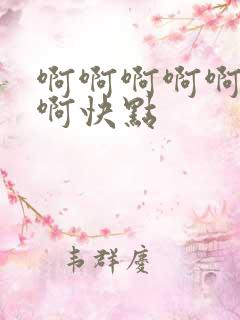 啊啊啊啊啊
啊快點
韦群慶